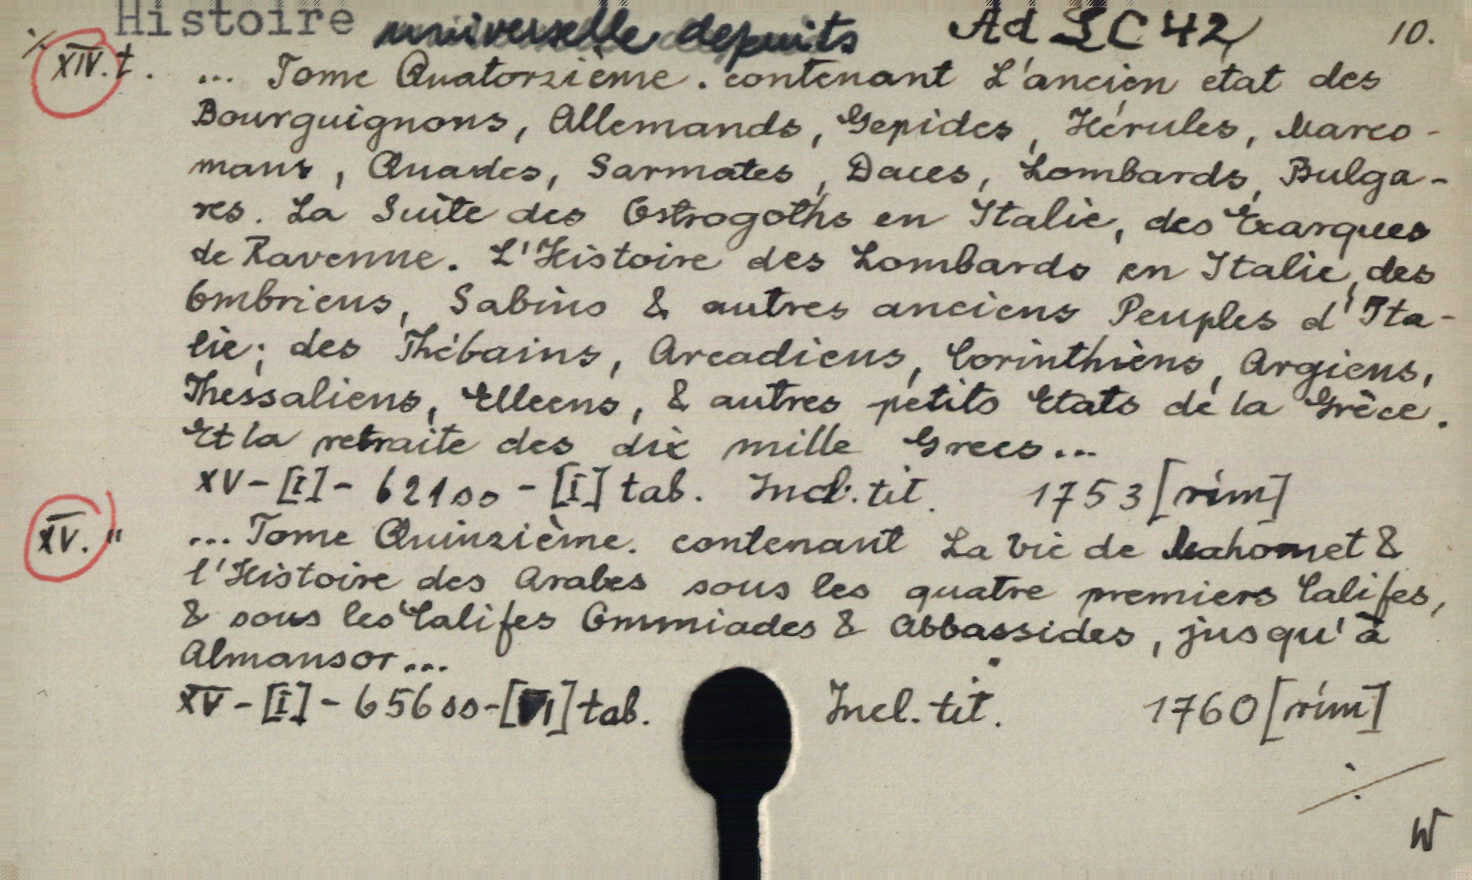 Histoire universelle depuits Ad SC 42 10.
XIV. t. ... Tome Quatorzième. contenant L'ancien état des
Bourguignons, Allemands, Gepides, Hérules, Marco-
mans, Quades, Sarmates, Daces, Lombards, Bulga-
res. La Suite des Ostrogoths en Italie, des Exarques
de Ravenne. L'Histoire des Lombards en Italie, des
Ombriens, Sabins & autres anciens Peuples d'Ita-
lie; des Thébains, Arcadiens, Corinthiens, Argiens,
Thessaliens, Elleens, & autres petits Etats de la Grèce.
Et la retraite des dix mille Grecs...
XV-[I]- 621 oo - [I] tab. Incl. tit. 1753 [rim]
XV. " ... Tome Quinzième. contenant La Vie de Mahomet &
l'Histoire des Arabes sous les quatre premiers Califes,
& sous les Califes Ommiades & Abbassides, jusqu'à
Almansor...
XV-[I]- 656 oo-[VI] tab. Incl. tit. 1760 [rim]
./.
W